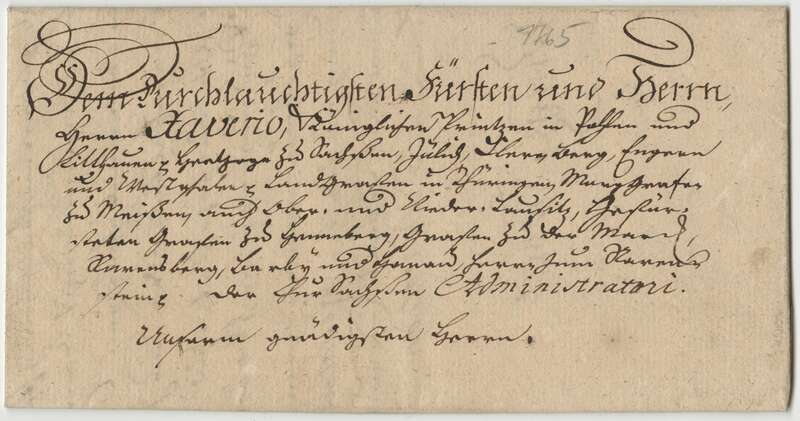 1765
Dem Durchlauchtigsten Fürsten und Herrn,
Herrn Xaverio, Königlichen Printzen in Pohlen und
Litthauen p Hertzoge zu Sachßen, Jülich, Cleve, Berg, Engern
und Westphalen p Landgrafen in Thüringen, Marggrafen
zu Meißen, auch Ober- und Nieder-Lausitz, Gefür-
steten Grafen zu Henneberg, Grafen zu der Marck,
Ravensberg, Barby und Hanau, Herrn zum Raven-
stein p der Chur Sachßen Administratori.
Unserm gnädigsten Herrn.